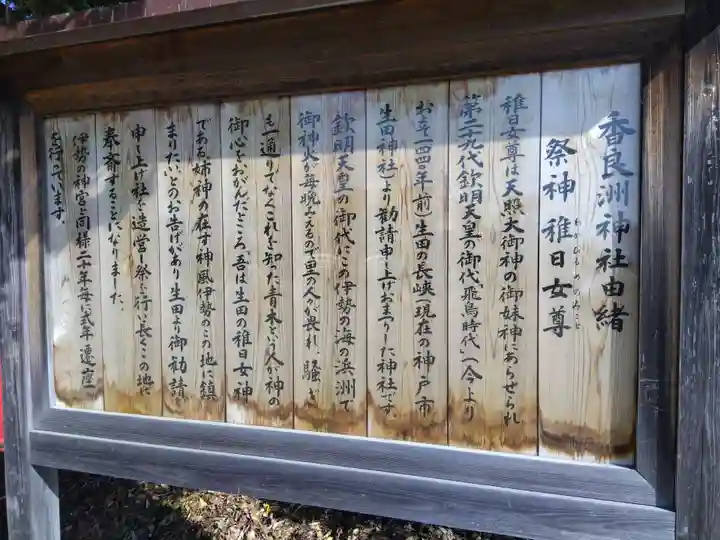 香良洲神社由緒
祭神 稚日女尊
わかひるめのみこと
稚日女尊は天照大御神の御妹神にあらせられ
第二十九代欽明天皇の御代、飛鳥時代、(今より
およそ一四四〇年前)生田の長峡(現在の神戸市
生田神社)より勧請申し上げおまつりした神社です。
欽明天皇の御代にこの伊勢の海の浜洲で
御神火が毎晩みえるので里の人が畏れ、騒ぎ
も一通りでなくこれを知った青木という人が神の
御心をおうかがいしたところ吾は生田の稚日女神
である姉神の在す神風伊勢のこの地に鎮
まりたいとのお告げがあり生田より御勧請を
申し上げ社を造営し祭を行い長くこの地に
奉斎することになりました。
伊勢の神宮と同様二十年毎に式年遷座
を行っています。